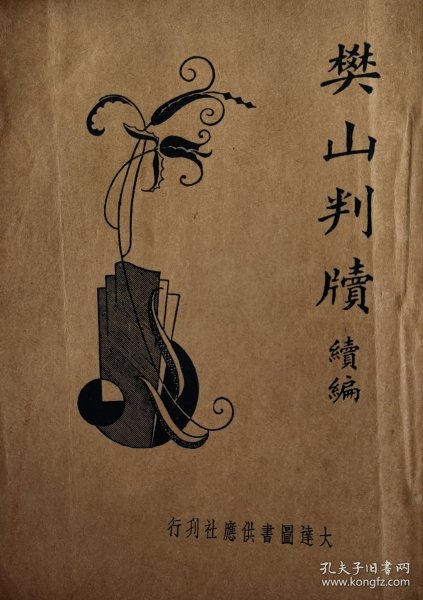 樊山判牘
續編
大達圖書供應社刋行
孔夫子旧书网
www.kongfz.com